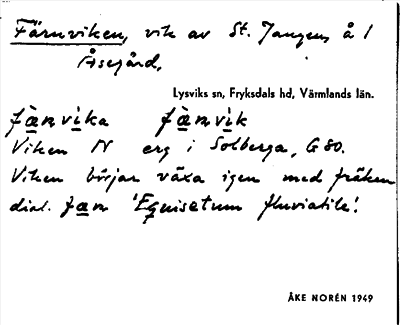 Färnviken, vik av St. Jangen, å 1
Åsegård,
Lysviks sn, Fryksdals hd, Värmlands län.
fà̱nvi̱ka fà̱nvi̱k
Viken N erg i Solberga, G 80.
Viken börjar växa igen med fräken
dial. fa̱n 'Equisetum fluviatile'.
ÅKE NORÉN 1949